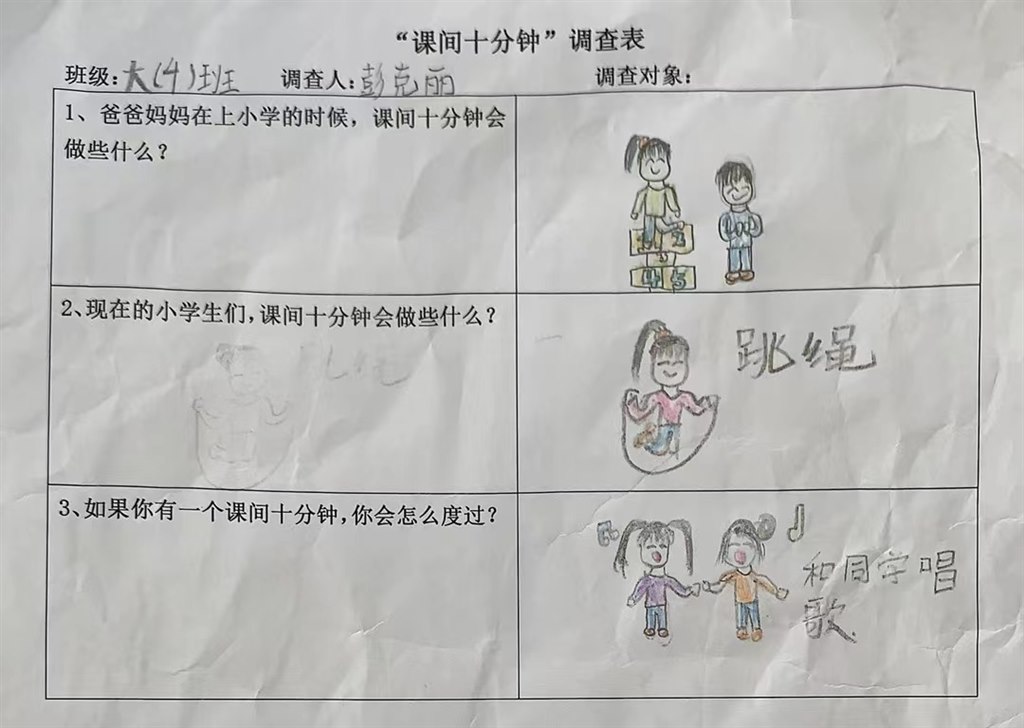 “课间十分钟”调查表
班级：大(4)班 调查人：彭克丽 调查对象：
1、爸爸妈妈在上小学的时候，课间十分钟会
做些什么？
2、现在的小学生们，课间十分钟会做些什么？
跳绳
3、如果你有一个课间十分钟，你会怎么度过？
和同学唱
歌